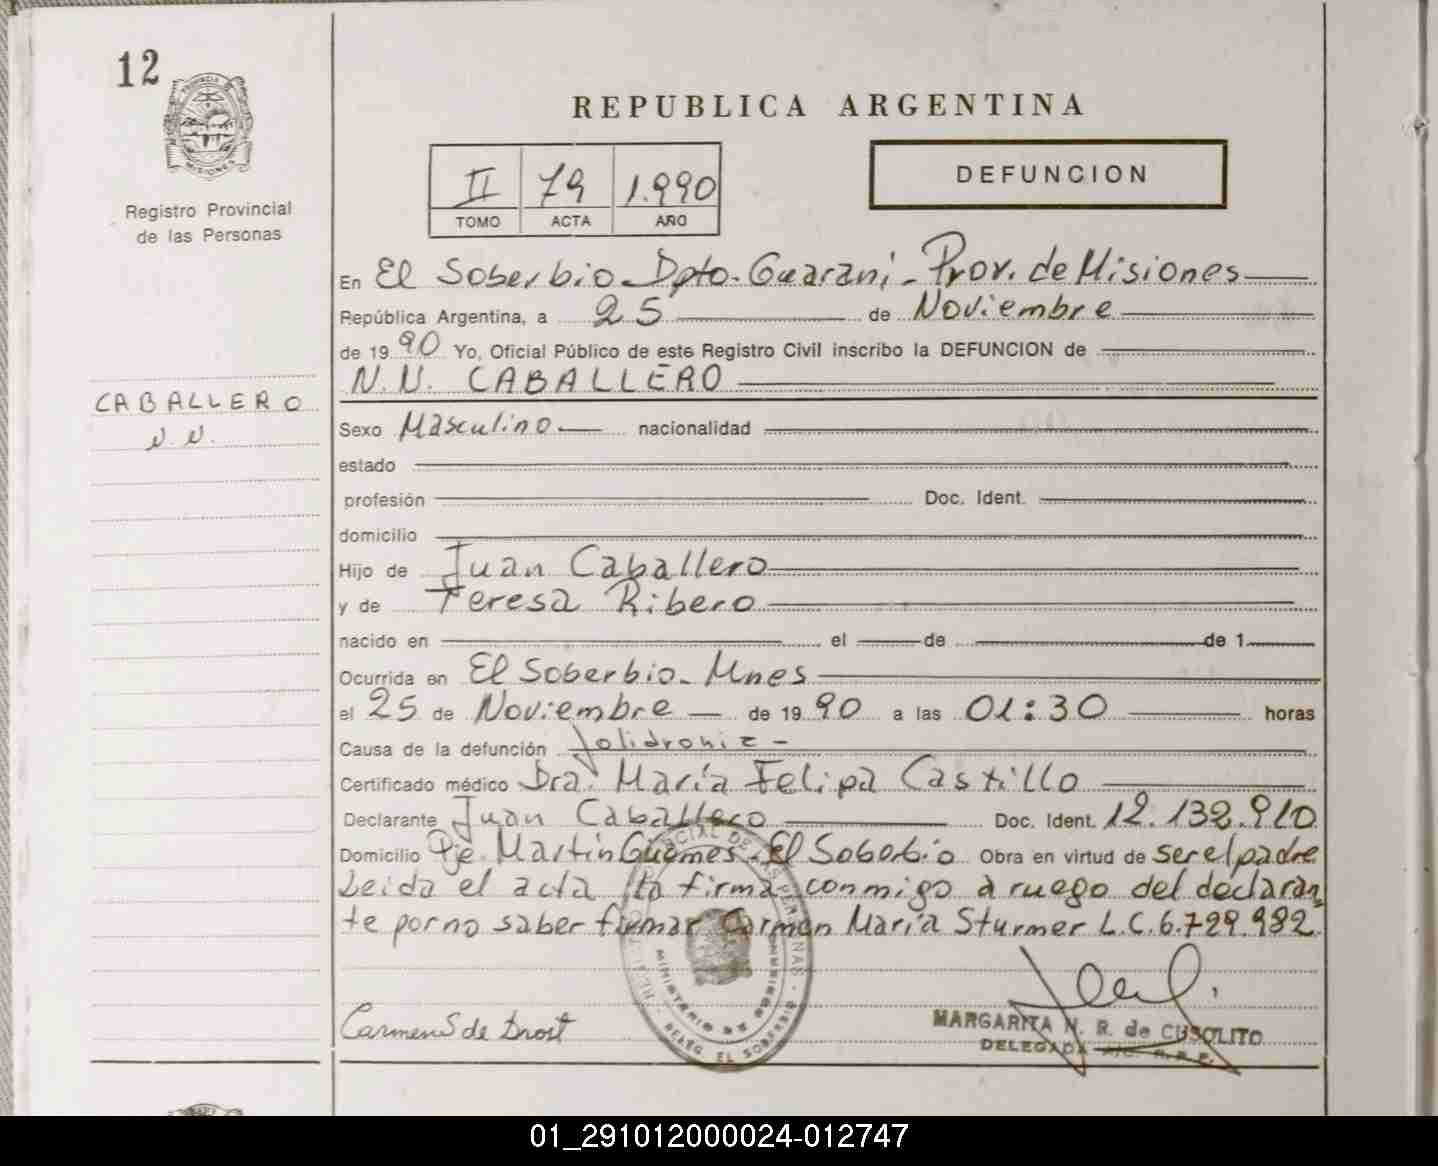 12
PROVINCIA DE
MISIONES
Registro Provincial
de las Personas
REPUBLICA ARGENTINA
II 79 1.990
TOMO ACTA AÑO
DEFUNCION
En El Soberbio - Dpto. Guaraní - Prov. de Misiones
República Argentina, a 25 de Noviembre
de 19 90 Yo, Oficial Público de este Registro Civil inscribo la DEFUNCION de
N.N. CABALLERO
CABALLERO
N.N.
Sexo Masculino nacionalidad
estado
profesión Doc. Ident.
domicilio
Hijo de Juan Caballero
y de Teresa Ribero
nacido en el de de 1
Ocurrida en El Soberbio - Mnes
el 25 de Noviembre de 19 90 a las 01:30 horas
Causa de la defunción
Certificado médico Dra. María Felipa Castillo
Declarante Juan Caballero Doc. Ident. 12.132.910
Domicilio Pje. Martín Guemes - El Soberbio Obra en virtud de ser el padre
Leida el acta la firma conmigo a ruego del declaran
te por no saber firmar Carmen María Sturmer L.C. 6.729.982
MINISTERIO DE GOBIERNO
DELEG. EL SOBERBIO
Carmen S de Drost
MARGARITA N. R. de CUSOLITO
DELEGADA
01_291012000024-012747